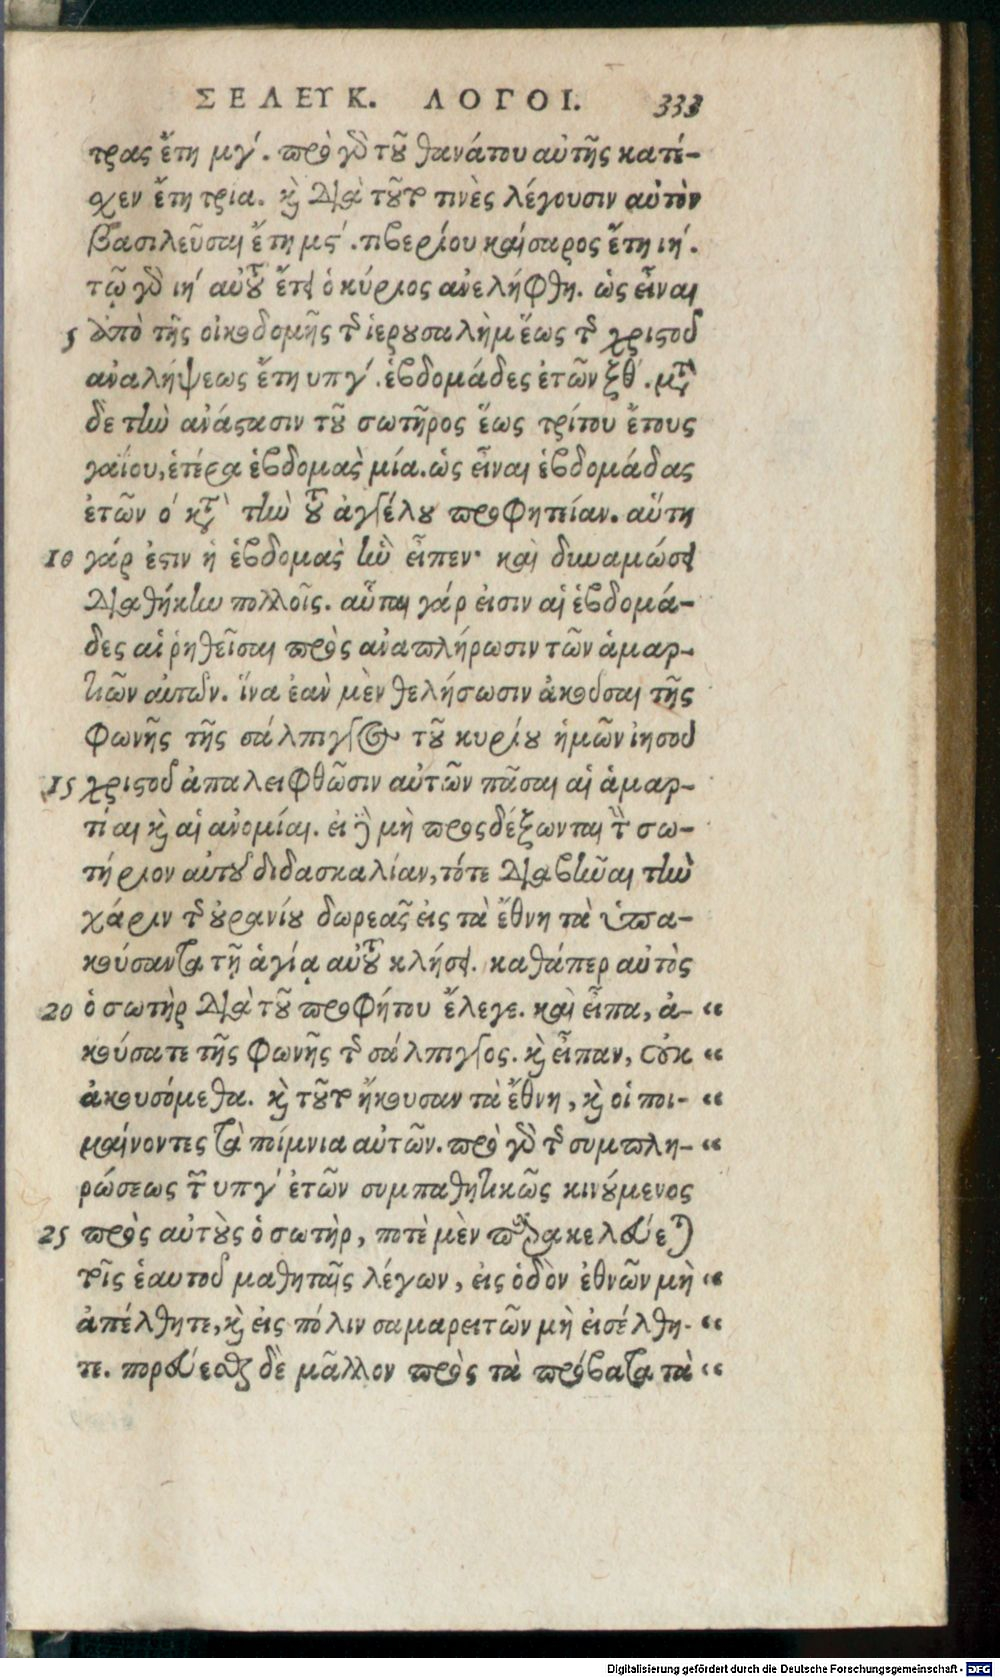 ΣΕΛΕΥΚ. ΛΟΓΟΙ. 333
τρας ἔτη μγ΄. πρὸ γὸ τοῦ θανάτου αὐτῆς κατέ-
χεν ἔτη τρία. κỳ διὰ τοῦτο τινὲς λέγουσιν αὐτὸν
βασιλεῦσαι ἔτη μϛ΄. τιβερίου καίσαρος ἔτη ιη΄.
τῷ γὸ ιη΄ αὐτοῦ ἔτει ὁ κύριος ἀνελήφθη. ὡς εἶναι
5 ἀπὸ τῆς οἰκοδομῆς τῆς ἱερουσαλὴμ ἕως τῆς χριστοῦ
ἀναλήψεως ἔτη υπγ΄. ἑβδομάδες ἐτῶν ξθ΄. μετὰ
δὲ τὴν ἀνάστασιν τοῦ σωτῆρος ἕως τρίτου ἔτους
γαΐου, ἑτέρα ἑβδομὰς μία. ὡς εἶναι ἑβδομάδας
ἐτῶν ο΄ κατὰ τὴν τοῦ ἀγγέλου προφητείαν. αὕτη
10 γάρ ἐστιν ἡ ἑβδομὰς ἣν εἶπεν· καὶ δυναμώσει
διαθήκην πολλοῖς. αὗται γάρ εἰσιν αἱ ἑβδομά-
δες αἱ ῥηθεῖσαι πρὸς ἀναπλήρωσιν τῶν ἁμαρ-
τιῶν αὐτῶν. ἵνα ἐὰν μὲν θελήσωσιν ἀκοῦσαι τῆς
φωνῆς τῆς σάλπιγγος τοῦ κυρίου ἡμῶν ἰησοῦ
15 χριστοῦ ἀπαλειφθῶσιν αὐτῶν πᾶσαι αἱ ἁμαρ-
τίαι κỳ αἱ ἀνομίαι. εἰ δὲ μὴ προςδέξωνται τὴν σω-
τήριον αὐτοῦ διδασκαλίαν, τότε διαβῆναι τὴν
χάριν τῆς οὐρανίου δωρεᾶς εἰς τὰ ἔθνη τὰ ὑπα-
κούσαντα τῇ ἁγίᾳ αὐτοῦ κλήσει. καθάπερ αὐτὸς
20 ὁ σωτὴρ διὰ τοῦ προφήτου ἔλεγε. καὶ εἶπα, ἀ- “
κούσατε τῆς φωνῆς τῆς σάλπιγγος. κỳ εἶπαν, οὐκ “
ἀκουσόμεθα. κỳ τοῦτο ἤκουσαν τὰ ἔθνη, κỳ οἱ ποι- “
μαίνοντες τὰ ποίμνια αὐτῶν. πρὸ γὸ τῆς συμπλη- “
ρώσεως τῶν υπγ΄ ἐτῶν συμπαθητικῶς κινούμενος
25 πρὸς αὐτοὺς ὁ σωτὴρ, ποτὲ μὲν παρακελεύεται
τοῖς ἑαυτοῦ μαθηταῖς λέγων, εἰς ὁδὸν ἐθνῶν μὴ “
ἀπέλθητε, κỳ εἰς πόλιν σαμαρειτῶν μὴ εἰσέλθη- “
τε. πορεύεσθε δὲ μᾶλλον πρὸς τὰ πρόβατα τὰ “
Digitalisierung gefördert durch die Deutsche Forschungsgemeinschaft - DFG